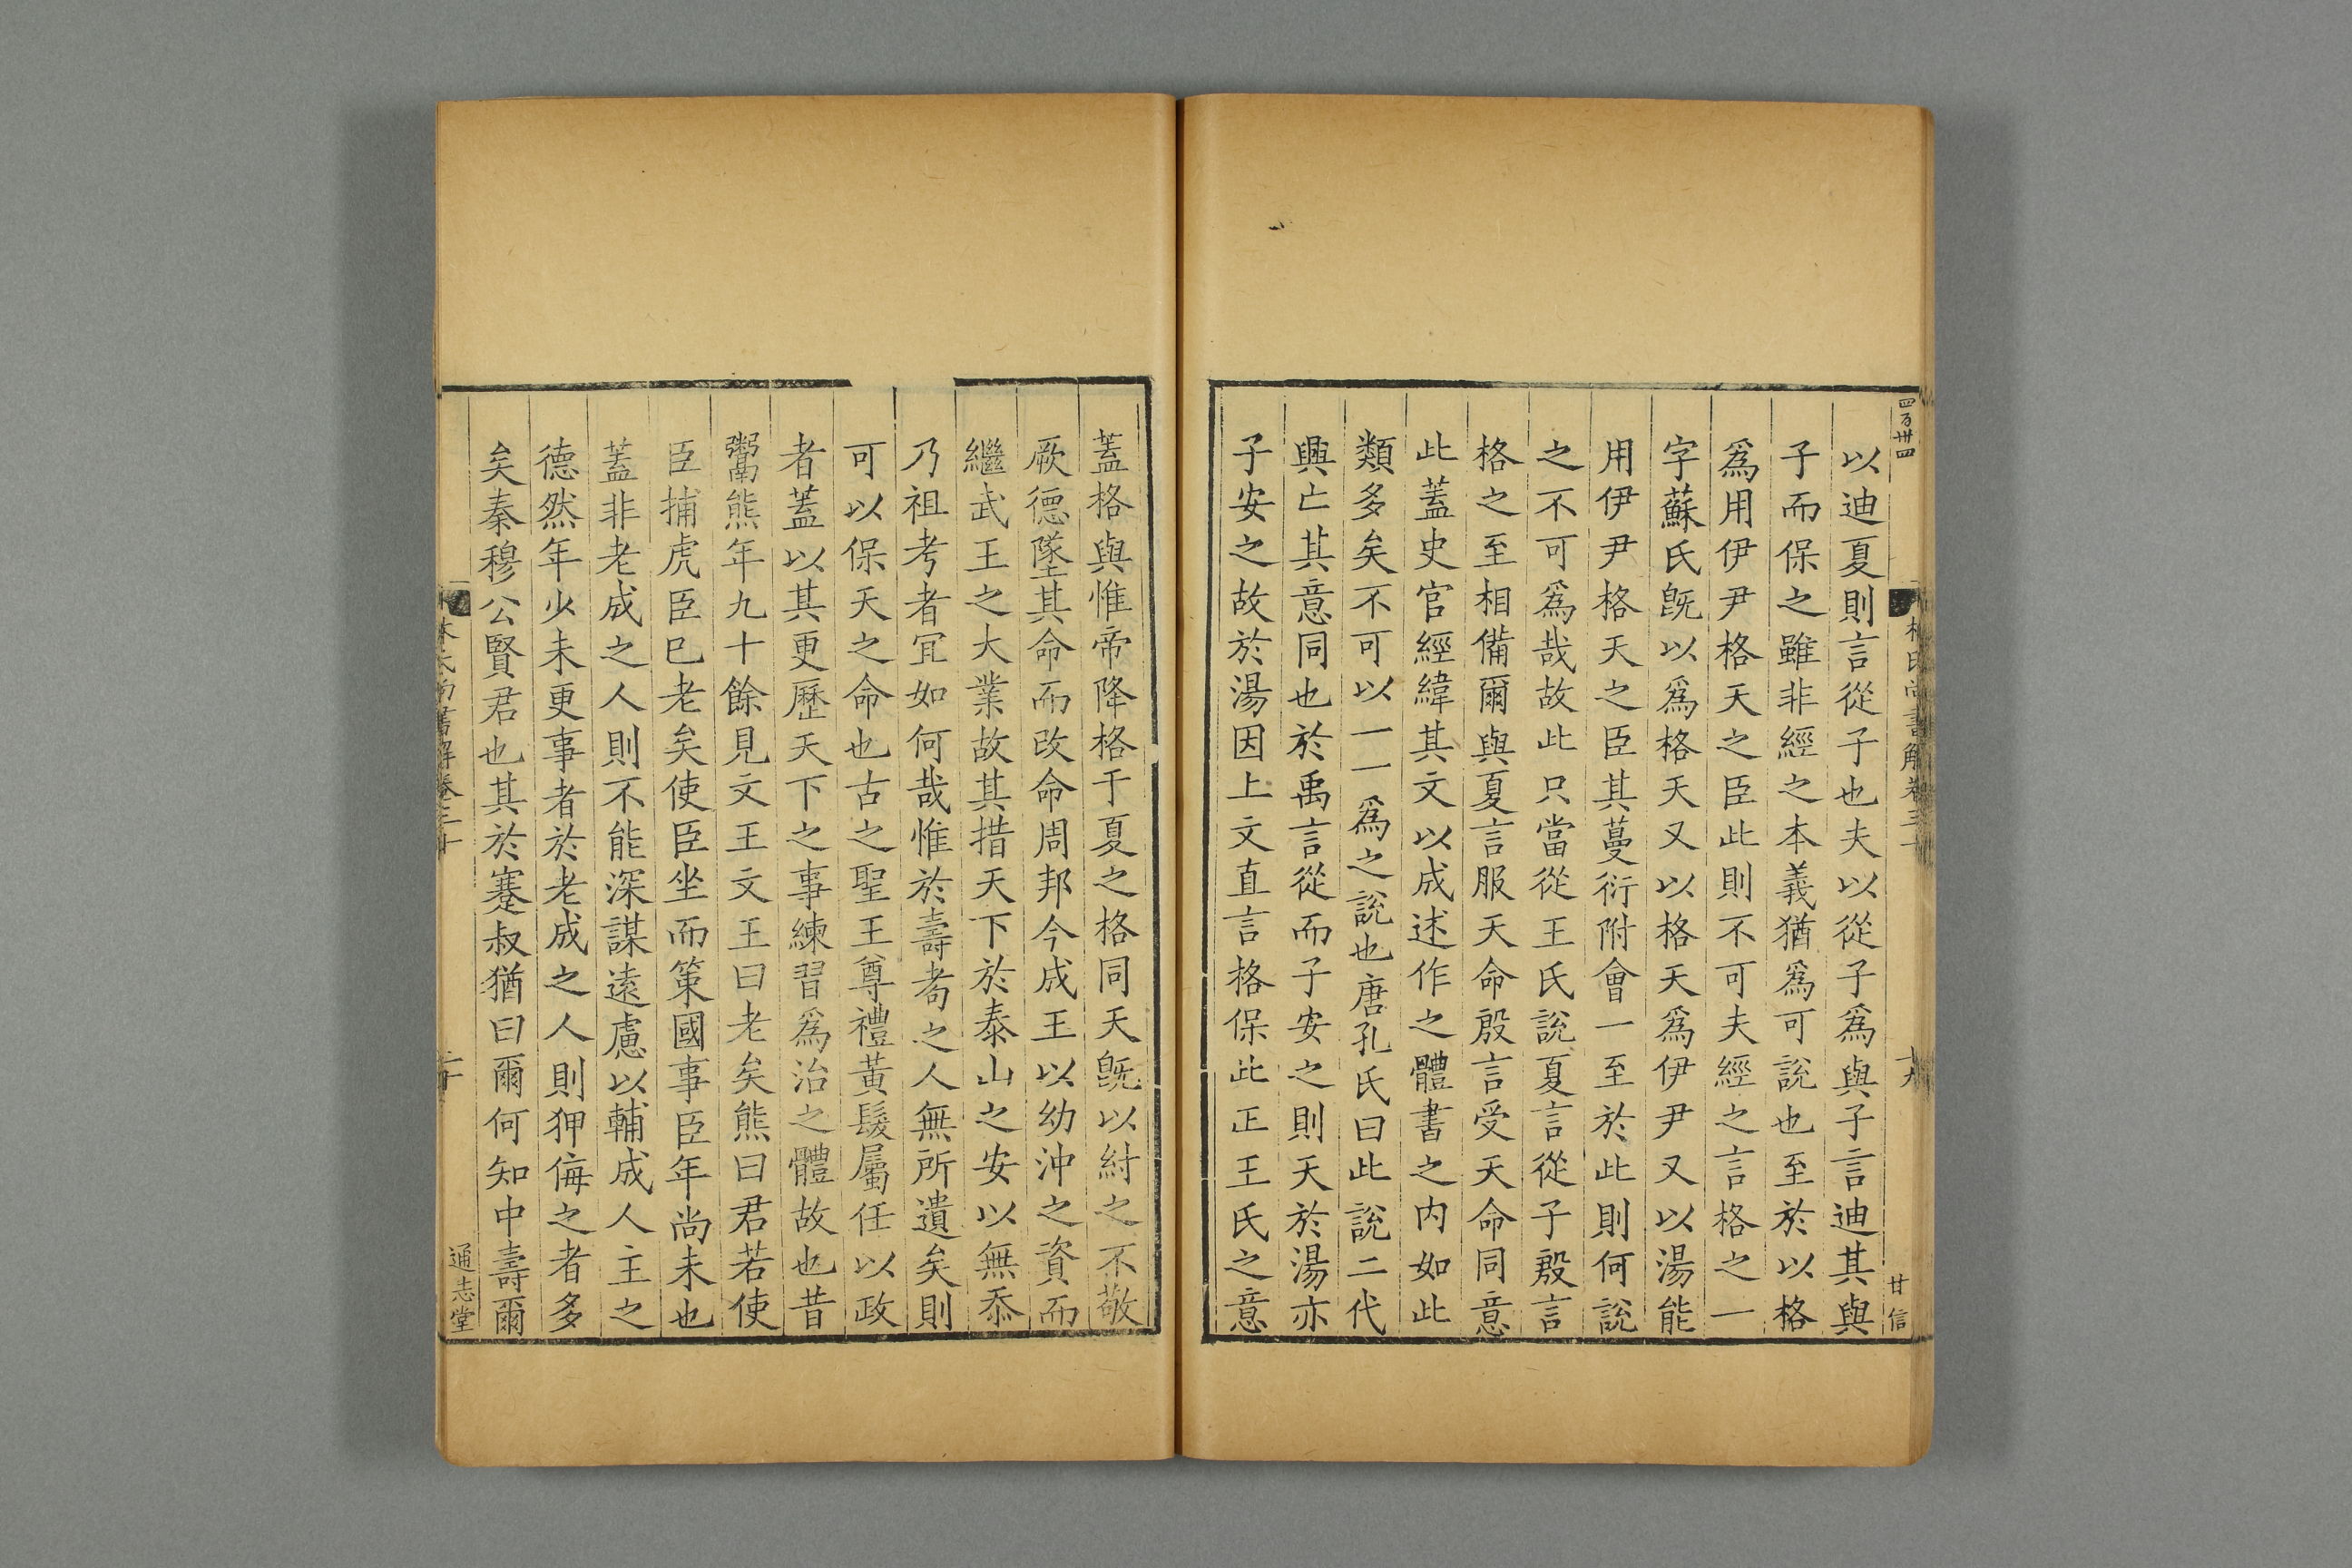 四百卅四
林氏尚書解卷三十
十九
甘信
以迪夏則言從子也夫以從子爲與子言迪其與
子而保之雖非經之本義猶爲可說也至於以格
爲用伊尹格天之臣此則不可夫經之言格之一
字蘇氏旣以爲格天又以格天爲伊尹又以湯能
用伊尹格天之臣其蔓衍附會一至於此則何說
之不可爲哉故此只當從王氏說夏言從子殷言
格之至相備爾與夏言服天命殷言受天命同意
此蓋史官經緯其文以成述作之體書之内如此
類多矣不可以一一爲之說也唐孔氏曰此說二代
興亡其意同也於禹言從而子安之則天於湯亦
子安之故於湯因上文直言格保此正王氏之意
蓋格與惟帝降格于夏之格同天旣以紂之不敬
厥德墜其命而改命周邦今成王以幼沖之資而
繼武王之大業故其措天下於泰山之安以無忝
乃祖考者冝如何哉惟於壽耇之人無所遺矣則
可以保天之命也古之聖王尊禮黃髮屬任以政
者蓋以其更歷天下之事練習爲治之體故也昔
鬻熊年九十餘見文王文王曰老矣熊曰君若使
臣捕虎臣已老矣使臣坐而策國事臣年尚未也
蓋非老成之人則不能深謀遠慮以輔成人主之
德然年少未更事者於老成之人則狎侮之者多
矣秦穆公賢君也其於蹇叔猶曰爾何知中壽爾
林氏尚書解卷三十
二十
通志堂